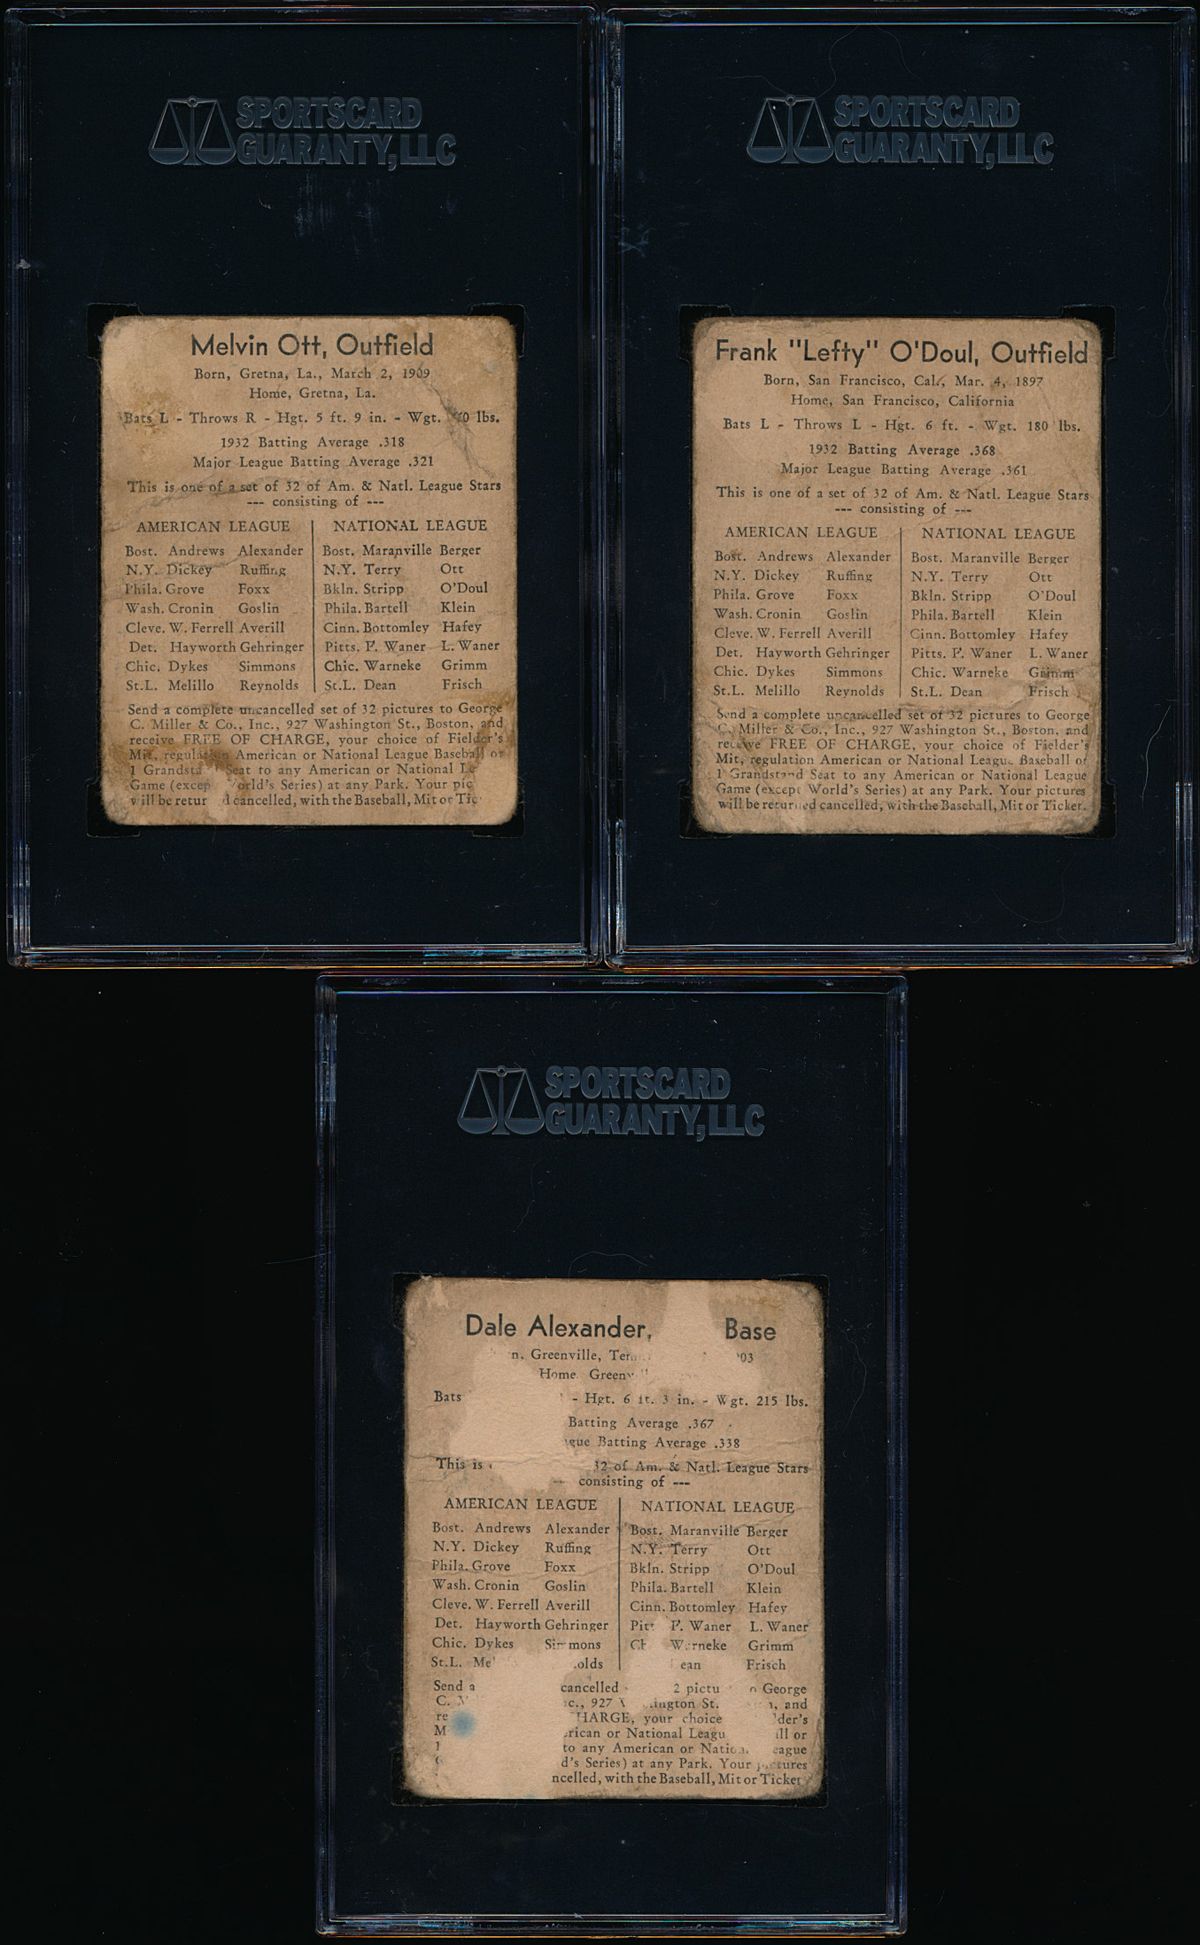 SPORTSCARD
GUARANTY, LLC
Melvin Ott, Outfield
Born, Gretna, La., March 2, 1909
Home, Gretna, La.
Bats L - Throws R - Hgt. 5 ft. 9 in. - Wgt. lbs.
1932 Batting Average .318
Major League Batting Average .321
This is one of a set of 32 of Am. & Natl. League Stars
--- consisting of ---
AMERICAN LEAGUE NATIONAL LEAGUE
Bost. Andrews Alexander Bost. Maranville Berger
N.Y. Dickey Ruffing N.Y. Terry Ott
Phila. Grove Foxx Bkln. Stripp O'Doul
Wash. Cronin Goslin Phila. Bartell Klein
Cleve. W. Ferrell Averill Cinn. Bottomley Hafey
Det. Hayworth Gehringer Pitts. P. Waner L. Waner
Chic. Dykes Simmons Chic. Warneke Grimm
St.L. Melillo Reynolds St.L. Dean Frisch
Send a complete uncancelled set of 32 pictures to George
C. Miller & Co., Inc., 927 Washington St., Boston, and
receive FREE OF CHARGE, your choice of Fielder's
Mit, regulation American or National League Baseball or
1 Grandsta Seat to any American or National Le
Game (excep World's Series) at any Park. Your pic
will be retur d cancelled, with the Baseball, Mit or Tic
SPORTSCARD
GUARANTY, LLC
Frank "Lefty" O'Doul, Outfield
Born, San Francisco, Cal., Mar. 4, 1897
Home, San Francisco, California
Bats L - Throws L - Hgt. 6 ft. - Wgt. 180 lbs.
1932 Batting Average .368
Major League Batting Average .361
This is one of a set of 32 of Am. & Natl. League Stars
--- consisting of ---
AMERICAN LEAGUE NATIONAL LEAGUE
Bost. Andrews Alexander Bost. Maranville Berger
N.Y. Dickey Ruffing N.Y. Terry Ott
Phila. Grove Foxx Bkln. Stripp O'Doul
Wash. Cronin Goslin Phila. Bartell Klein
Cleve. W. Ferrell Averill Cinn. Bottomley Hafey
Det. Hayworth Gehringer Pitts. P. Waner L. Waner
Chic. Dykes Simmons Chic. Warneke Grimm
St.L. Melillo Reynolds St.L. Dean Frisch
Send a complete uncancelled set of 32 pictures to George
C. Miller & Co., Inc., 927 Washington St., Boston, and
receive FREE OF CHARGE, your choice of Fielder's
Mit, regulation American or National League Baseball or
1 Grandstand Seat to any American or National League
Game (except World's Series) at any Park. Your pictures
will be returned cancelled, with the Baseball, Mit or Ticket.
SPORTSCARD
GUARANTY, LLC
Dale Alexander, Base
n, Greenville, Ten 03
Home, Greenv
Bats - Hgt. 6 ft. 3 in. - Wgt. 215 lbs.
Batting Average .367
ague Batting Average .338
This is 32 of Am. & Natl. League Stars
consisting of ---
AMERICAN LEAGUE NATIONAL LEAGUE
Bost. Andrews Alexander Bost. Maranville Berger
N.Y. Dickey Ruffing N.Y. Terry Ott
Phila. Grove Foxx Bkln. Stripp O'Doul
Wash. Cronin Goslin Phila. Bartell Klein
Cleve. W. Ferrell Averill Cinn. Bottomley Hafey
Det. Hayworth Gehringer Pitt P. Waner L. Waner
Chic. Dykes Simmons Ch Warneke Grimm
St.L. Me olds ean Frisch
Send a cancelled 2 pictu o George
C. M nc., 927 ington St. , and
re HARGE, your choice lder's
M erican or National Leagu ll or
1 to any American or Nation eague
d's Series) at any Park. Your p tures
ncelled, with the Baseball, Mit or Ticket